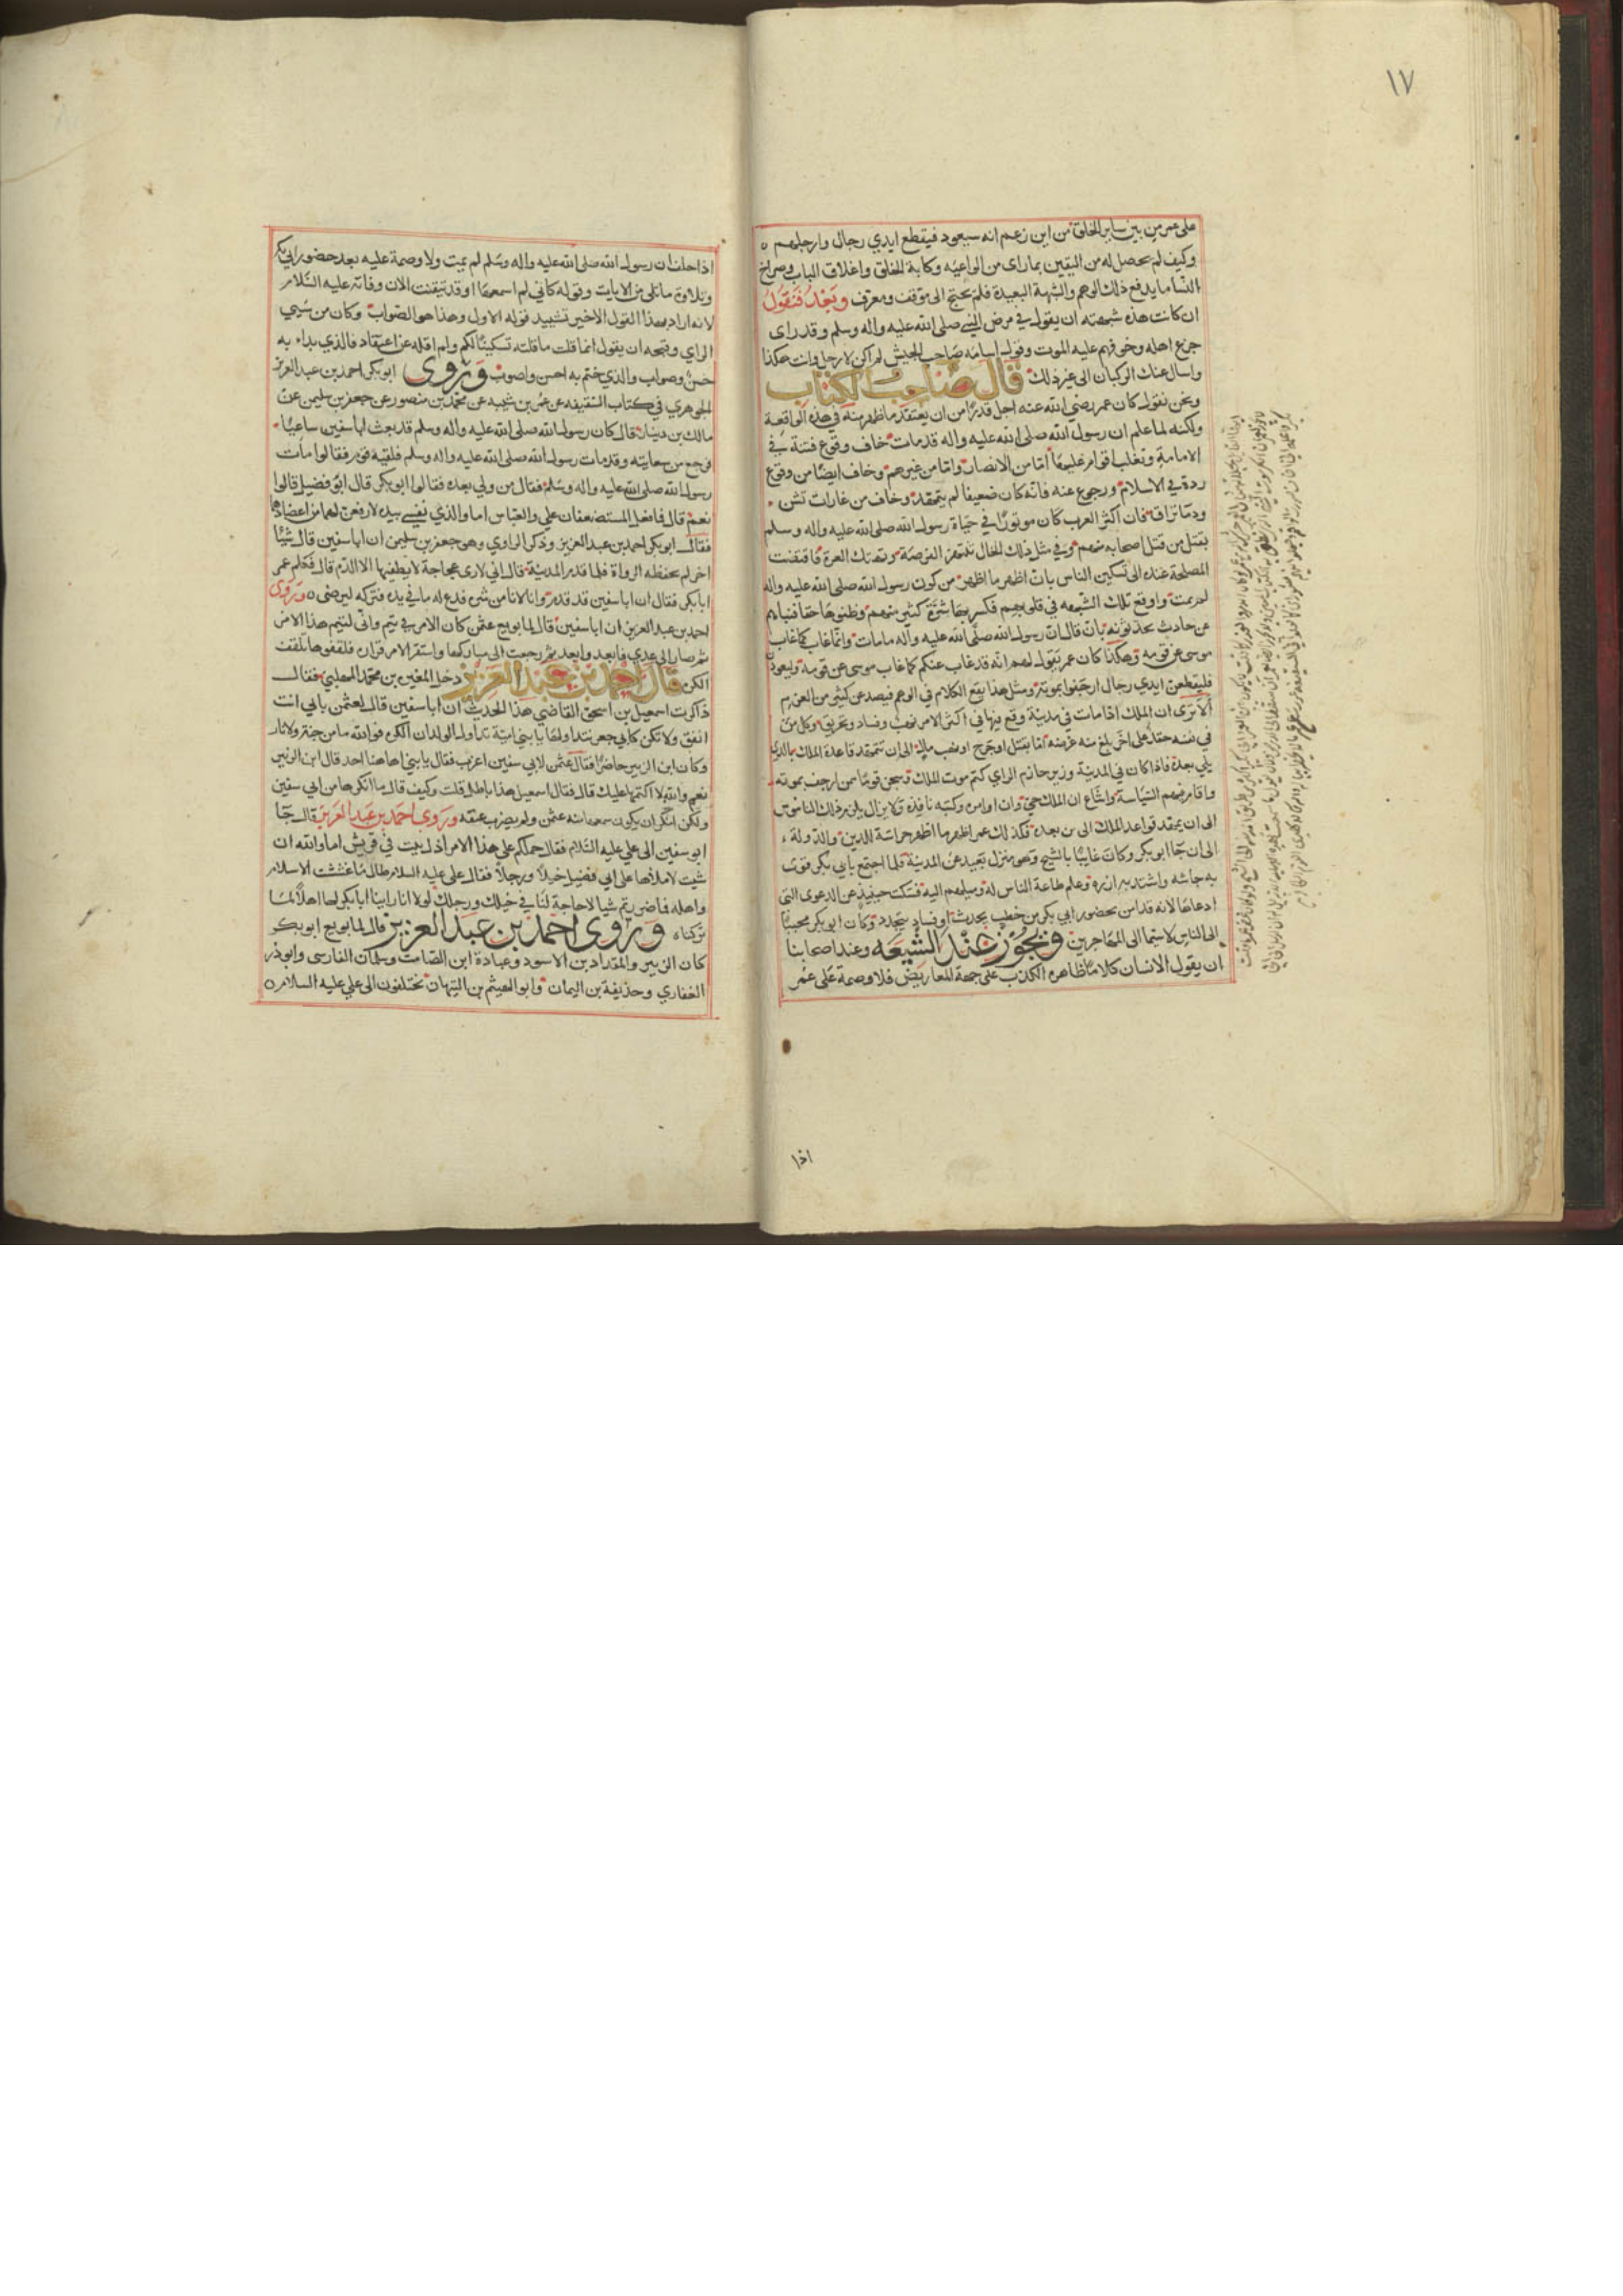 ١٧
على عمر من بين ساير الخلق من اين زعم انه سيعود فيقطع ايدي رجال وارجلهم
وكيف لم يحصل له من اليقين بما راى من الواعيه وكابة الخلق واغلاق الباب وصراخ
النسا ما يدفع ذلك الوهم والشبهة البعيدة فلم يحتج الى موقف ومعرف وبعد فنقول
ان كانت هذه شبهته ان يقول في مرض النبي صلى الله عليه واله وسلم وقد راى
جزع اهله وخوفهم عليه الموت وقول اسامه صاحب الجيش لم اكن لارحل وانت هكذا
واسال عنك الركبان الى غير ذلك قال صاحب الكتاب
ونحن نقول كان عمر رضي الله عنه اجل قدرا من ان يعتقد ما ظهر منه في هذه الواقعة
ولكنه لما علم ان رسول الله صلى الله عليه واله قد مات خاف وقوع فتنة في
الامامة وتغلب اقوام عليها اما من الانصار واما من غيرهم وخاف ايضا من وقوع
ردة في الاسلام ورجوع عنه فانه كان ضعيفا لم يتمهد وخاف من غارات تشن
ودما تراق فان اكثر العرب كان موتورا في حياة رسول الله صلى الله عليه واله وسلم
بقتل من قتل اصحابه منهم وفي مثل ذلك الحال تنتهز الفرصة وتهتبل الغرة فاقتضت
المصلحة عنده الى تسكين الناس بان اظهر ما اظهر من كون رسول الله صلى الله عليه واله
لم يمت واوقع تلك الشبهه في قلوبهم فكسر بها شرة كثير منهم وظنوها حقا فثناهم
عن حادث يحدثونه بان قال ان رسول الله صلى الله عليه واله ما مات وانما غاب كما غاب
موسى عن قومه وهكذا كان عمر يقول لهم انه قد غاب عنكم كما غاب موسى عن قومه وليعودن
فليقطعن ايدي رجال ارجفوا بموته ومثل هذا يقع الكلام في الوهم فيصد عن كثير من العزم
الا ترى ان الملك اذا مات في مدينة وقع فيها في اكثر الامر نهب وفساد وتحريق وكل من
في نفسه حقد على اخر بلغ منه غرضه اما بقتل او جرح او نهب مال الى ان تتمهد قاعدة الملك الذي
يلي بعده فاذا كان في المدينة وزير حازم الراي كتم موت الملك وسجن قوما ممن ارجف بموته
واقام فيهم السياسة واشاع ان الملك حي وان اوامره وكتبه نافذه ولا يزال يلزم ذلك الناموس
الى ان يمهد قواعد الملك الى من بعده فكذلك عمر اظهر ما اظهر حراسة للدين والدولة
الى ان جا ابو بكر وكان غايبا بالسنح وهو منزل بعيد عن المدينة فلما اجتمع بابي بكر قوي
به جاشه واشتد به ازره وعلم طاعة الناس له وميلهم اليه فسكت حينيذ عن الدعوى التي
ادعاها لانه قد امن بحضور ابي بكر من خطب يحدث او فساد يتجدد وكان ابو بكر محببا
الى الناس لا سيما الى المهاجرين ويجوز عند الشيعه وعند اصحابنا
ان يقول الانسان كلاما ظاهره الكذب على جهة المعاريض فلا وصمة على عمر
اذا
اذا حلف ان رسول الله صلى الله عليه واله وسلم لم يمت ولا وصمة عليه بعد حضور ابي بكر
وتلاوة ما تلى من الايات وقوله كاني لم اسمعها او قد تيقنت الان وفاته عليه السلام
لانه اراد بهذا القول الاخير تشييد قوله الاول وهذا هو الصواب وكان من سيي
الراي وقبحه ان يقول انما قلت ما قلته تسكينا لكم ولم اقله عن اعتقاد فالذي بداء به
حسن وصواب والذي ختم به احسن واصوب وروى ابو بكر احمد بن عبد العزيز
الجوهري في كتاب السقيفه عن عمر بن شبه عن محمد بن منصور عن جعفر بن سليمن عن
مالك بن دينار قال كان رسول الله صلى الله عليه واله وسلم قد بعث ابا سفين ساعيا
فرجع من سعايته وقد مات رسول الله صلى الله عليه واله وسلم فلقيه قوم فقالوا مات
رسول الله صلى الله عليه واله وسلم فقال من ولي بعده فقالوا ابو بكر قال ابو فضيل قالوا
نعم قال فما فعل المستضعفان علي والعباس اما والذي نفسي بيده لارفعن لهما من اعضادهما
فقال ابو بكر احمد بن عبد العزيز وذكر الراوي وهو جعفر بن سليمن ان ابا سفين قال شيا
اخر لم يحفظه الرواة فلما قدم المدينة قال اني لارى عجاجة لا يطفيها الا الدم قال فكلم عمر
ابا بكر فقال ان ابا سفين قد قدم وانا لا نامن شره فدع له ما في يده فتركه ليرضى وروى
احمد بن عبد العزيز ان ابا سفين قال لما بويع عثمن كان الامر في تيم وانى لتيم هذا الامر
ثم صار الى عدي فابعد وابعد ثم رجعت الى مباركها واستقر الامر قراره فلقفوها تلقف
الكره قال احمد بن عبد العزيز دخل المغيره بن محمد المهلبي فقال
ذاكرت اسمعيل بن اسحق القاضي هذا الحديث ان ابا سفين قال لعثمن بابي انت
انفق ولا تكن كابي جحر تداولوها يا بني امية تداول الولدان الكره فوالله ما من جنة ولا نار
وكان ابن الزبير حاضرا فقال عثمن لابي سفين اعزب فقال يا بني اهاهنا احد قال ابن الزبير
نعم والله لا اكتمها عليك قال فقال اسمعيل هذا باطل قلت وكيف قال ما انكر هذا من ابي سفين
ولكن انكر ان يكون سمعه عثمن ولم يضرب عنقه وروى احمد بن عبد العزيز قال جا
ابو سفين الى علي عليه السلام فقال وليتم على هذا الامر اذل بيت في قريش اما والله ان
شيت لاملاها على ابي فضيل خيلا ورجلا فقال علي عليه السلام طال ما غششت الاسلام
واهله فما ضررتم شيا لا حاجة لنا في خيلك ورجلك لولا انا راينا ابا بكر لها اهلا لما
تركناه وروى احمد بن عبد العزيز قال لما بويع ابو بكر
كان الزبير والمقداد بن الاسود وعبادة ابن الصامت وسلمان الفارسي وابو ذر
الغفاري وحذيفة بن اليمان وابو الهيثم بن التيهان يختلفون الى علي عليه السلام